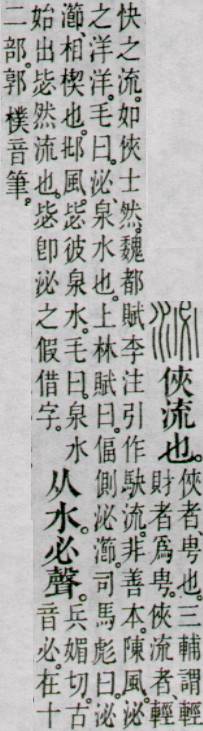 俠流也。
俠者、甹也。三輔謂輕
財者爲甹。俠流者、輕
快之流。如俠士然。魏都賦李注引作駃流。非善本。陳風。泌
之洋洋。毛曰。泌、泉水也。上林賦曰。偪側泌瀄。司馬彪曰。泌
瀄、相楔也。邶風。毖彼泉水。毛曰。泉水
始出毖然流也。毖卽泌之假借字。
从水必聲。
兵媚切。古
音必。在十
二部。郭樸音筆。